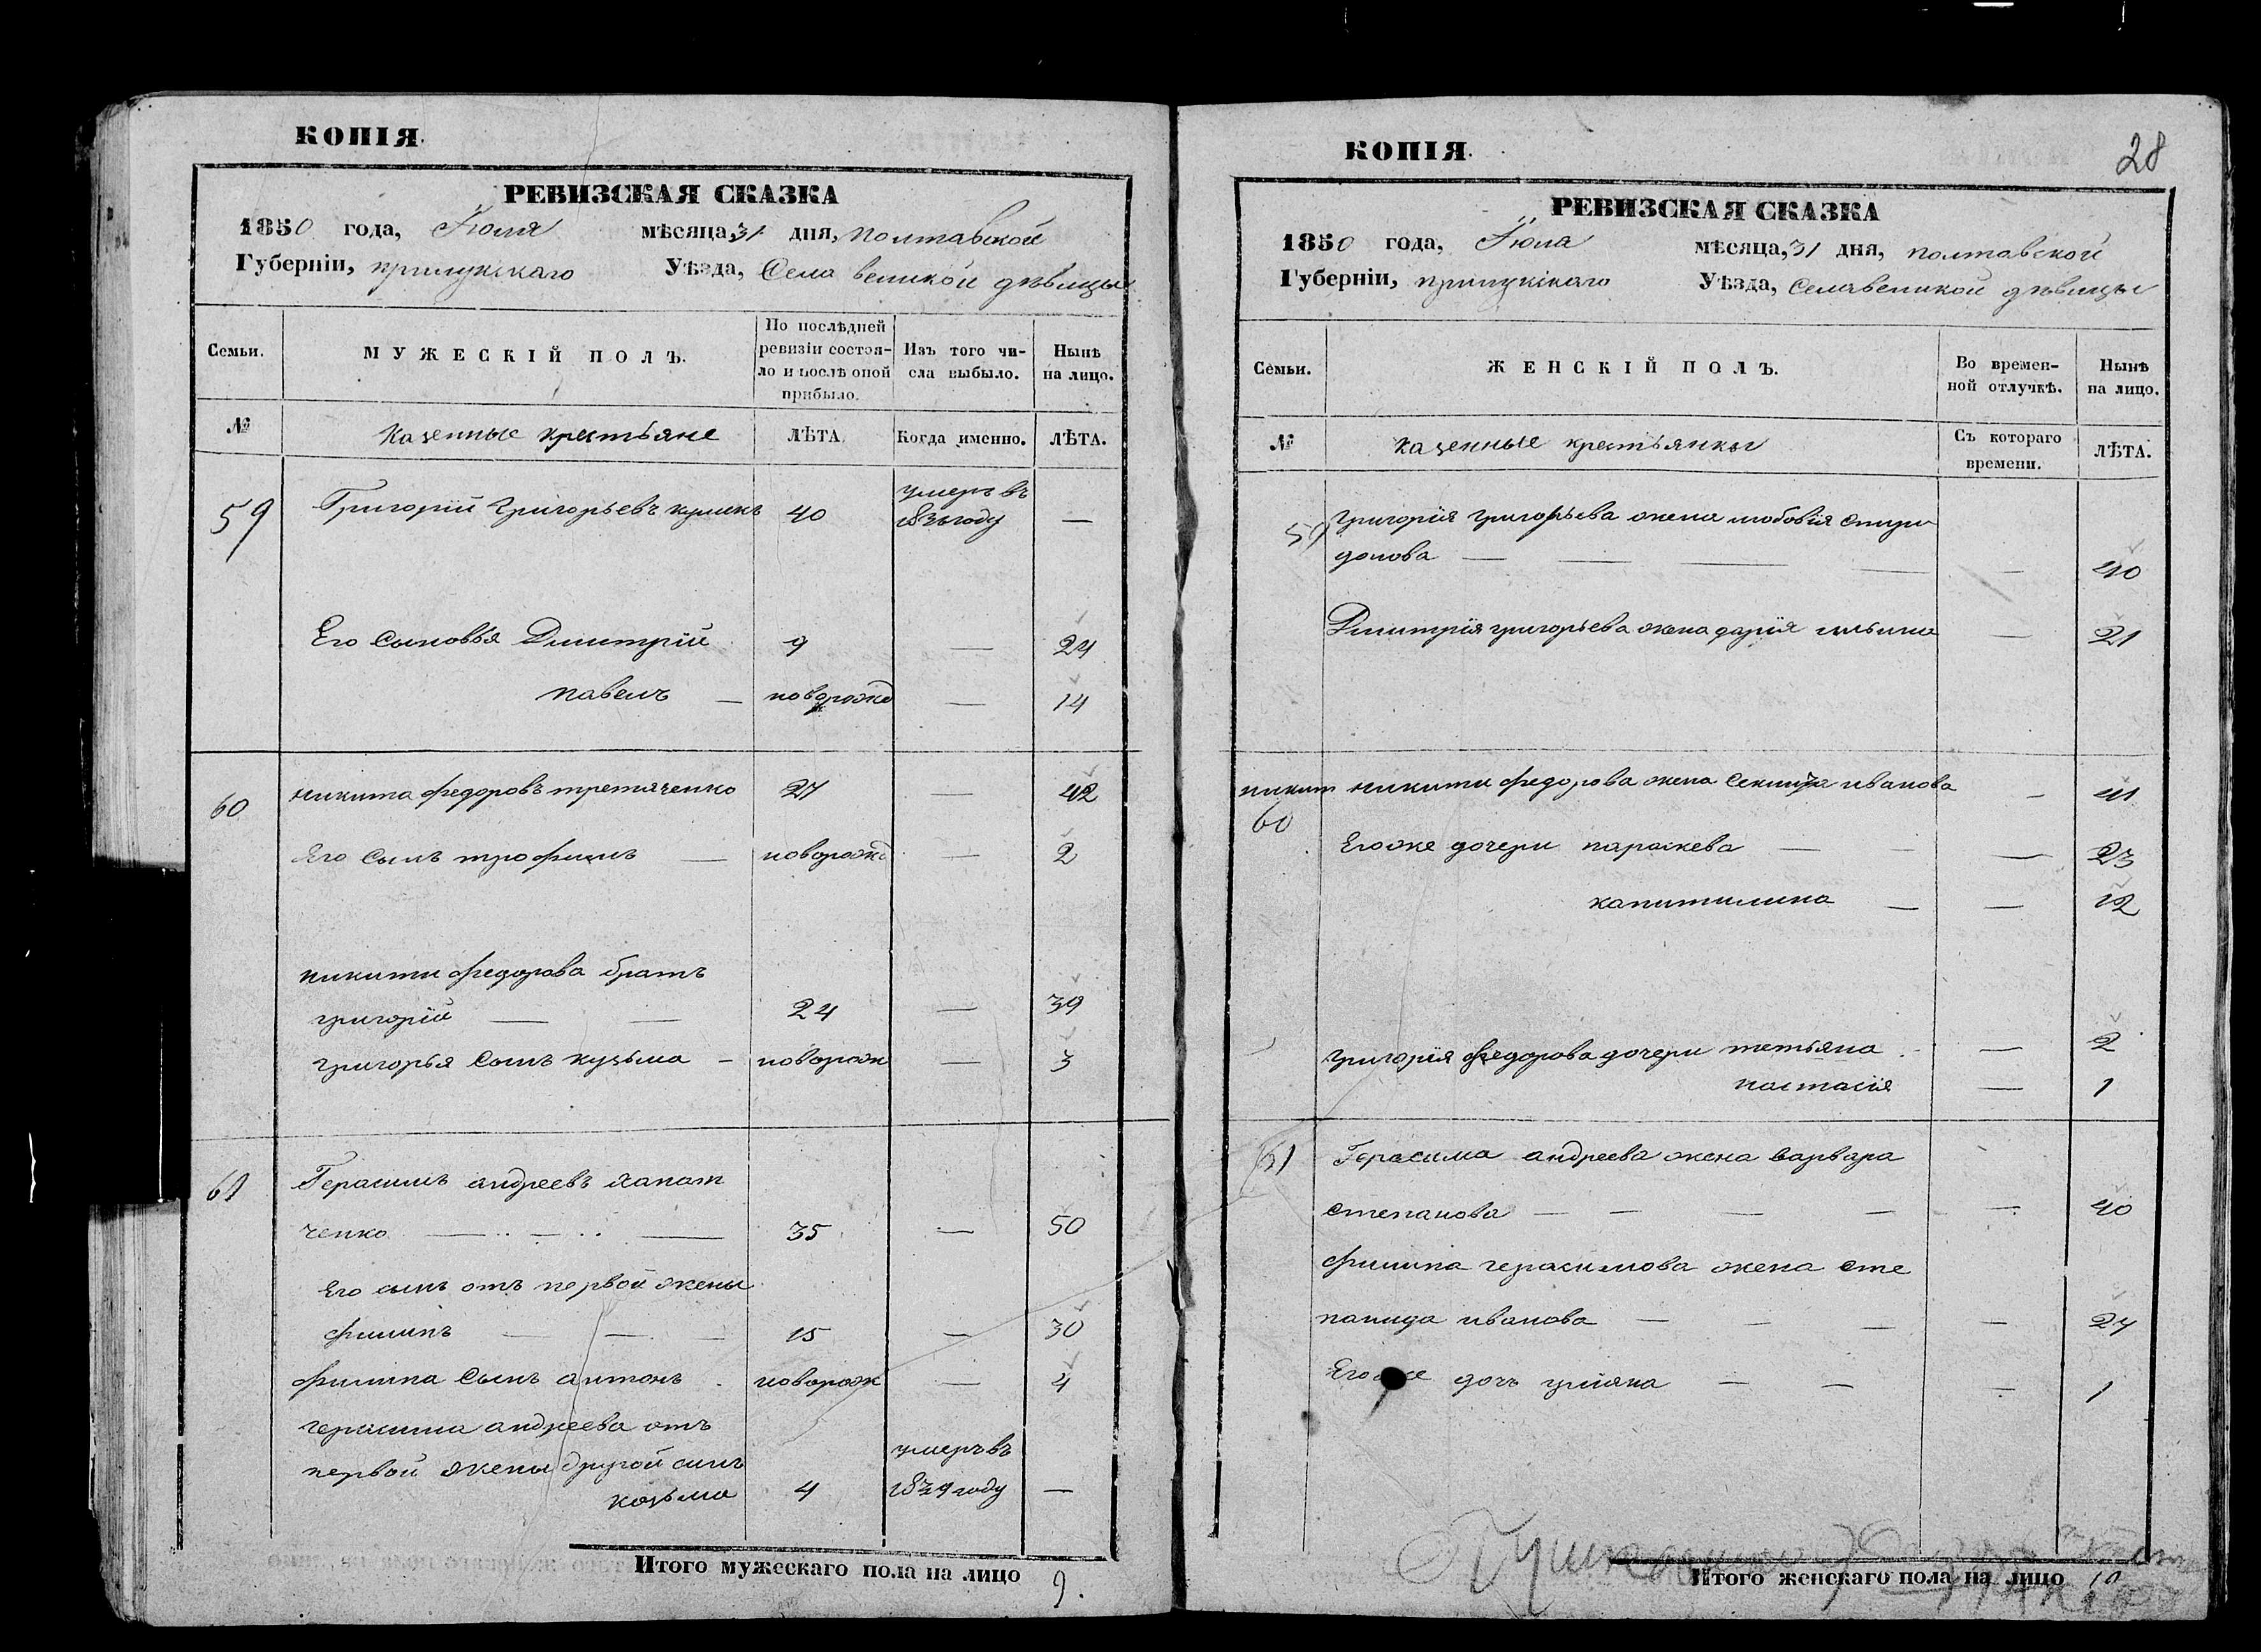 КОПІЯ.
РЕВИЗСКАЯ СКАЗКА
1850 года, Іюля мѣсяца, 31 дня, полтавской
Губерніи, прилукскаго Уѣзда, Села великой дѣвицы
Семьи.
МУЖЕСКІЙ ПОЛЪ.
По послѣдней
ревизіи состоя-
ло и послѣ оной
прибыло.
Изъ того чи-
сла выбыло.
Нынѣ
на лицо.
№
Казенные крестьяне
ЛѢТА.
Когда именно.
ЛѢТА.
59 Григорій Григорьевъ куликъ 40 умеръ въ
году —
Его Сыновья Дмитрій 9 — 24
павелъ — поворожд — 14
60 никита федоровъ третяченко 27 — 42
Его Сынъ трофимъ — новорожд — 2
никити федорова братъ
григорій — — 24 — 39
григорья Сынъ кузьма — новорож — 3
61 Герасимъ андреевъ
ченко — — — 35 — 50
Его сынъ отъ первой жены
филипъ — — — 15 — 30
филипа Сынъ антонъ новорож — 4
герасима андреева отъ
первой жены другой сынъ
козьма 4 умеръ въ
1839 году —
Итого мужескаго пола на лицо 9.
КОПІЯ.
28
РЕВИЗСКАЯ СКАЗКА
1850 года, Іюла мѣсяца, 31 дня, полтавской
Губерніи, прилукскаго Уѣзда, Села великой дѣвицы
Семьи.
ЖЕНСКІЙ ПОЛЪ.
Во времен-
ной отлучкѣ.
Нынѣ
на лицо.
№
казенные крестьянки
Съ котораго
времени.
ЛѢТА.
59 григорія григорьева жена любовія спири
донова — — — — — 40
Дмитрія григорьева жена дарія ильина — 21
никит никити федорова жена иванова — 41
60
Его же дочери параскева — — — 23
капитилина — — 12
григорія федорова дочери тетьяна — 2
настасія — 1
61 Герасима андреева жена варвара
степанова — — — — — 40
филипа герасимова жена сте
панида иванова — — — — 27
Его же дочь уліяна — — — 1
Итого женскаго пола на лицо 10